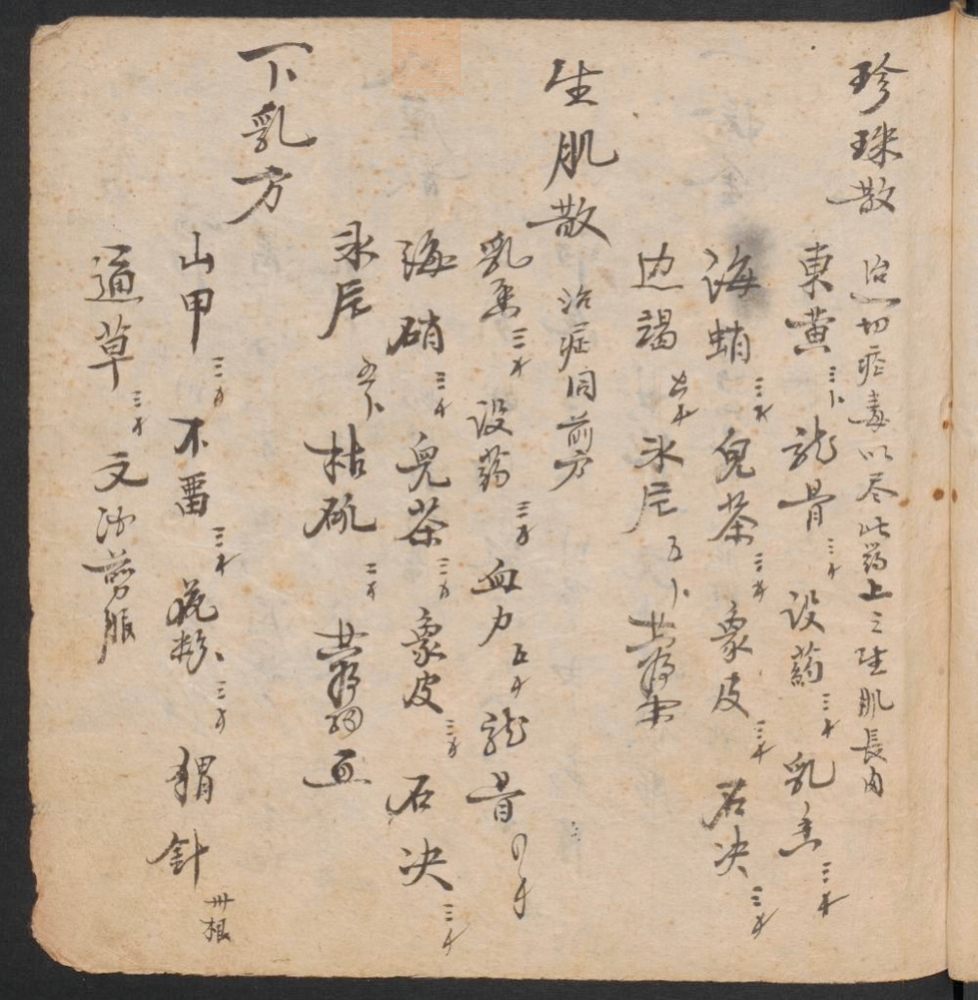 珍珠散 治一切疮毒以尽此药上之生肌長肉
東黄三卜 龙骨三才 设药三才 乳香三才
海蛸三才 兒茶三才 象皮三才 石决三才
边竭七才 氷片五卜 共为末
生肌散 治症同前方
乳香三才 设药三才 血力五才 龙骨
海硝三才 兒茶三才 象皮三才 石决三才
氷片五卜 枯矾二才 共为细面
下乳方
山甲三才 不畱三才 花粉三才 猬針卅根
通草三才 文沙前服